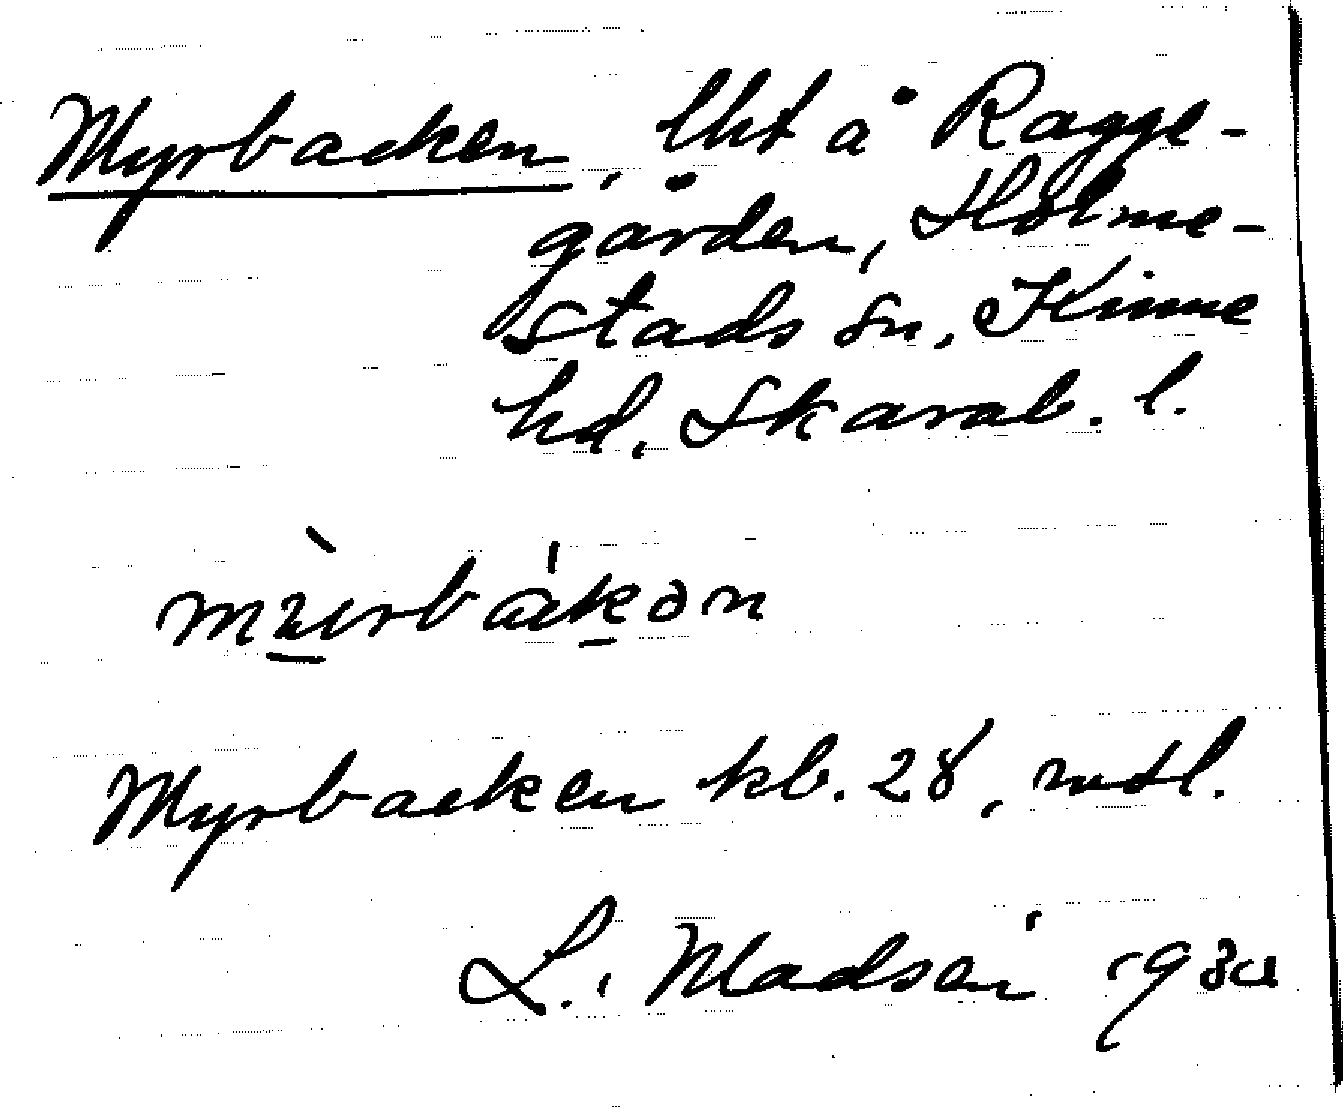 Myrbacken, lht å Ragge-
gården, Holme-
stads sn, Kinne
hd. Skarab. l.
Myrbacken kb. 28, mtl.
L. Madsén